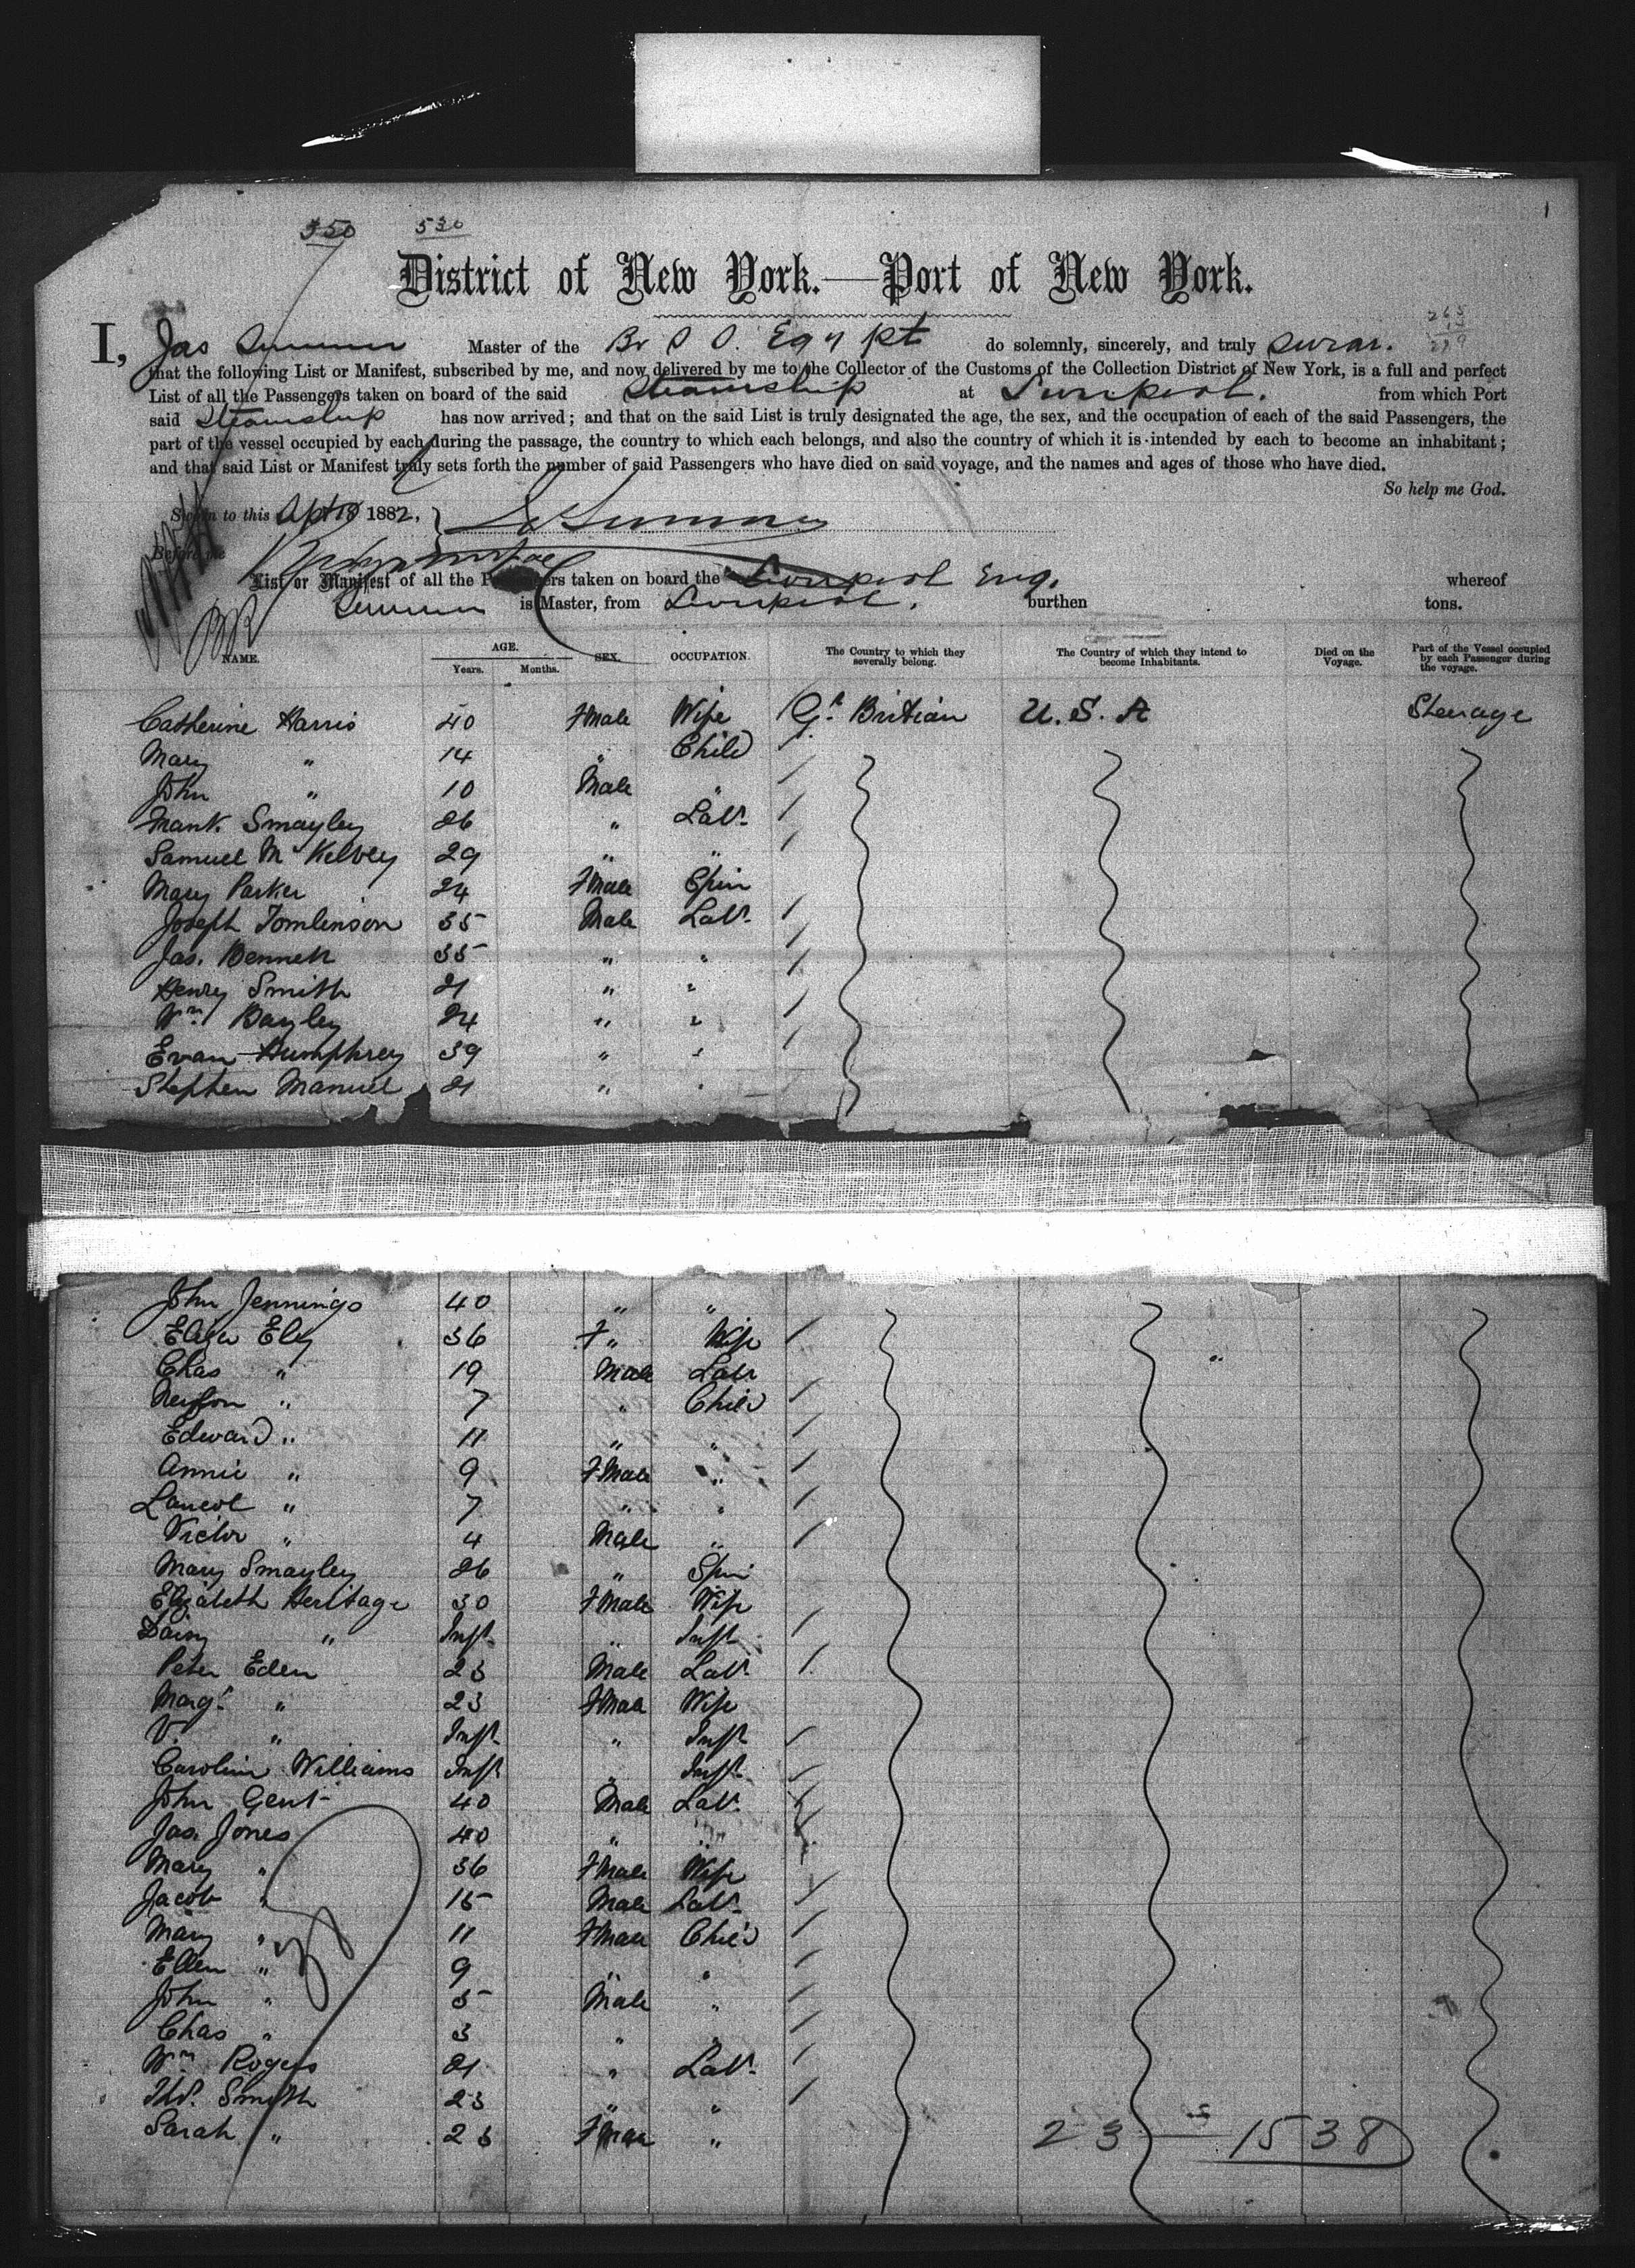 350 530
1
District of New York.—Port of New York.
265
14
279
I, Jas Sumner Master of the Br S S. Egypt do solemnly, sincerely, and truly swear.
that the following List or Manifest, subscribed by me, and now delivered by me to the Collector of the Customs of the Collection District of New York, is a full and perfect
List of all the Passengers taken on board of the said Steamship at Liverpool. from which Port
said Steamship has now arrived; and that on the said List is truly designated the age, the sex, and the occupation of each of the said Passengers, the
part of the vessel occupied by each during the passage, the country to which each belongs, and also the country of which it is intended by each to become an inhabitant;
and that said List or Manifest truly sets forth the number of said Passengers who have died on said voyage, and the names and ages of those who have died.
So help me God.
Sworn to this Apl 18 1882, Sumner
Before me
List or Manifest of all the Passengers taken on board the Liverpool Eng. whereof
Sumner is Master, from Liverpool. burthen tons.
NAME. AGE. Years. Months. SEX. OCCUPATION. The Country to which they severally belong. The Country of which they intend to become Inhabitants. Died on the Voyage. Part of the Vessel occupied by each Passenger during the voyage.
Catherine Harris 40 Fmale Wife Gt Britian U. S. A Steerage
Mary " 14 " Child
John " 10 Male "
Frank Smayley 26 " Labr
Samuel McKelvey 29 " "
Mary Parker 24 Fmale Spin
Joseph Tomlinson 35 Male Labr
Jas. Bennett 35 " "
Henry Smith 21 " "
Wm Bayley 24 " "
Evan Humphrey 39 " "
Stephen Manuel 21 " "
John Jennings 40 " "
Eliza Ely 36 F " Wife
Chas " 19 Male Labr
" 7 " Child
Edward " 11 " "
Annie " 9 Fmale "
" 7 " "
Victor " 4 Male "
Mary Smayley 26 " Spin
Elizabeth Heritage 30 Fmale Wife
Daisy " Inft " Inft
Peter Eden 23 Male Labr
Margt " 23 Fmale Wife
V. " Inft " Inft
Caroline Williams Inft " Inft
John Gent 40 Male Labr
Jas. Jones 40 " "
Mary " 36 Fmale Wife
Jacob " 15 Male Labr
Mary " 11 Fmale Child
Ellen " 9 " "
John " 5 Male "
Chas " 3 " "
Wm Rogers 21 " Labr
Thos. Smith 23 " "
Sarah " 23 Fmale "
23 — 1538